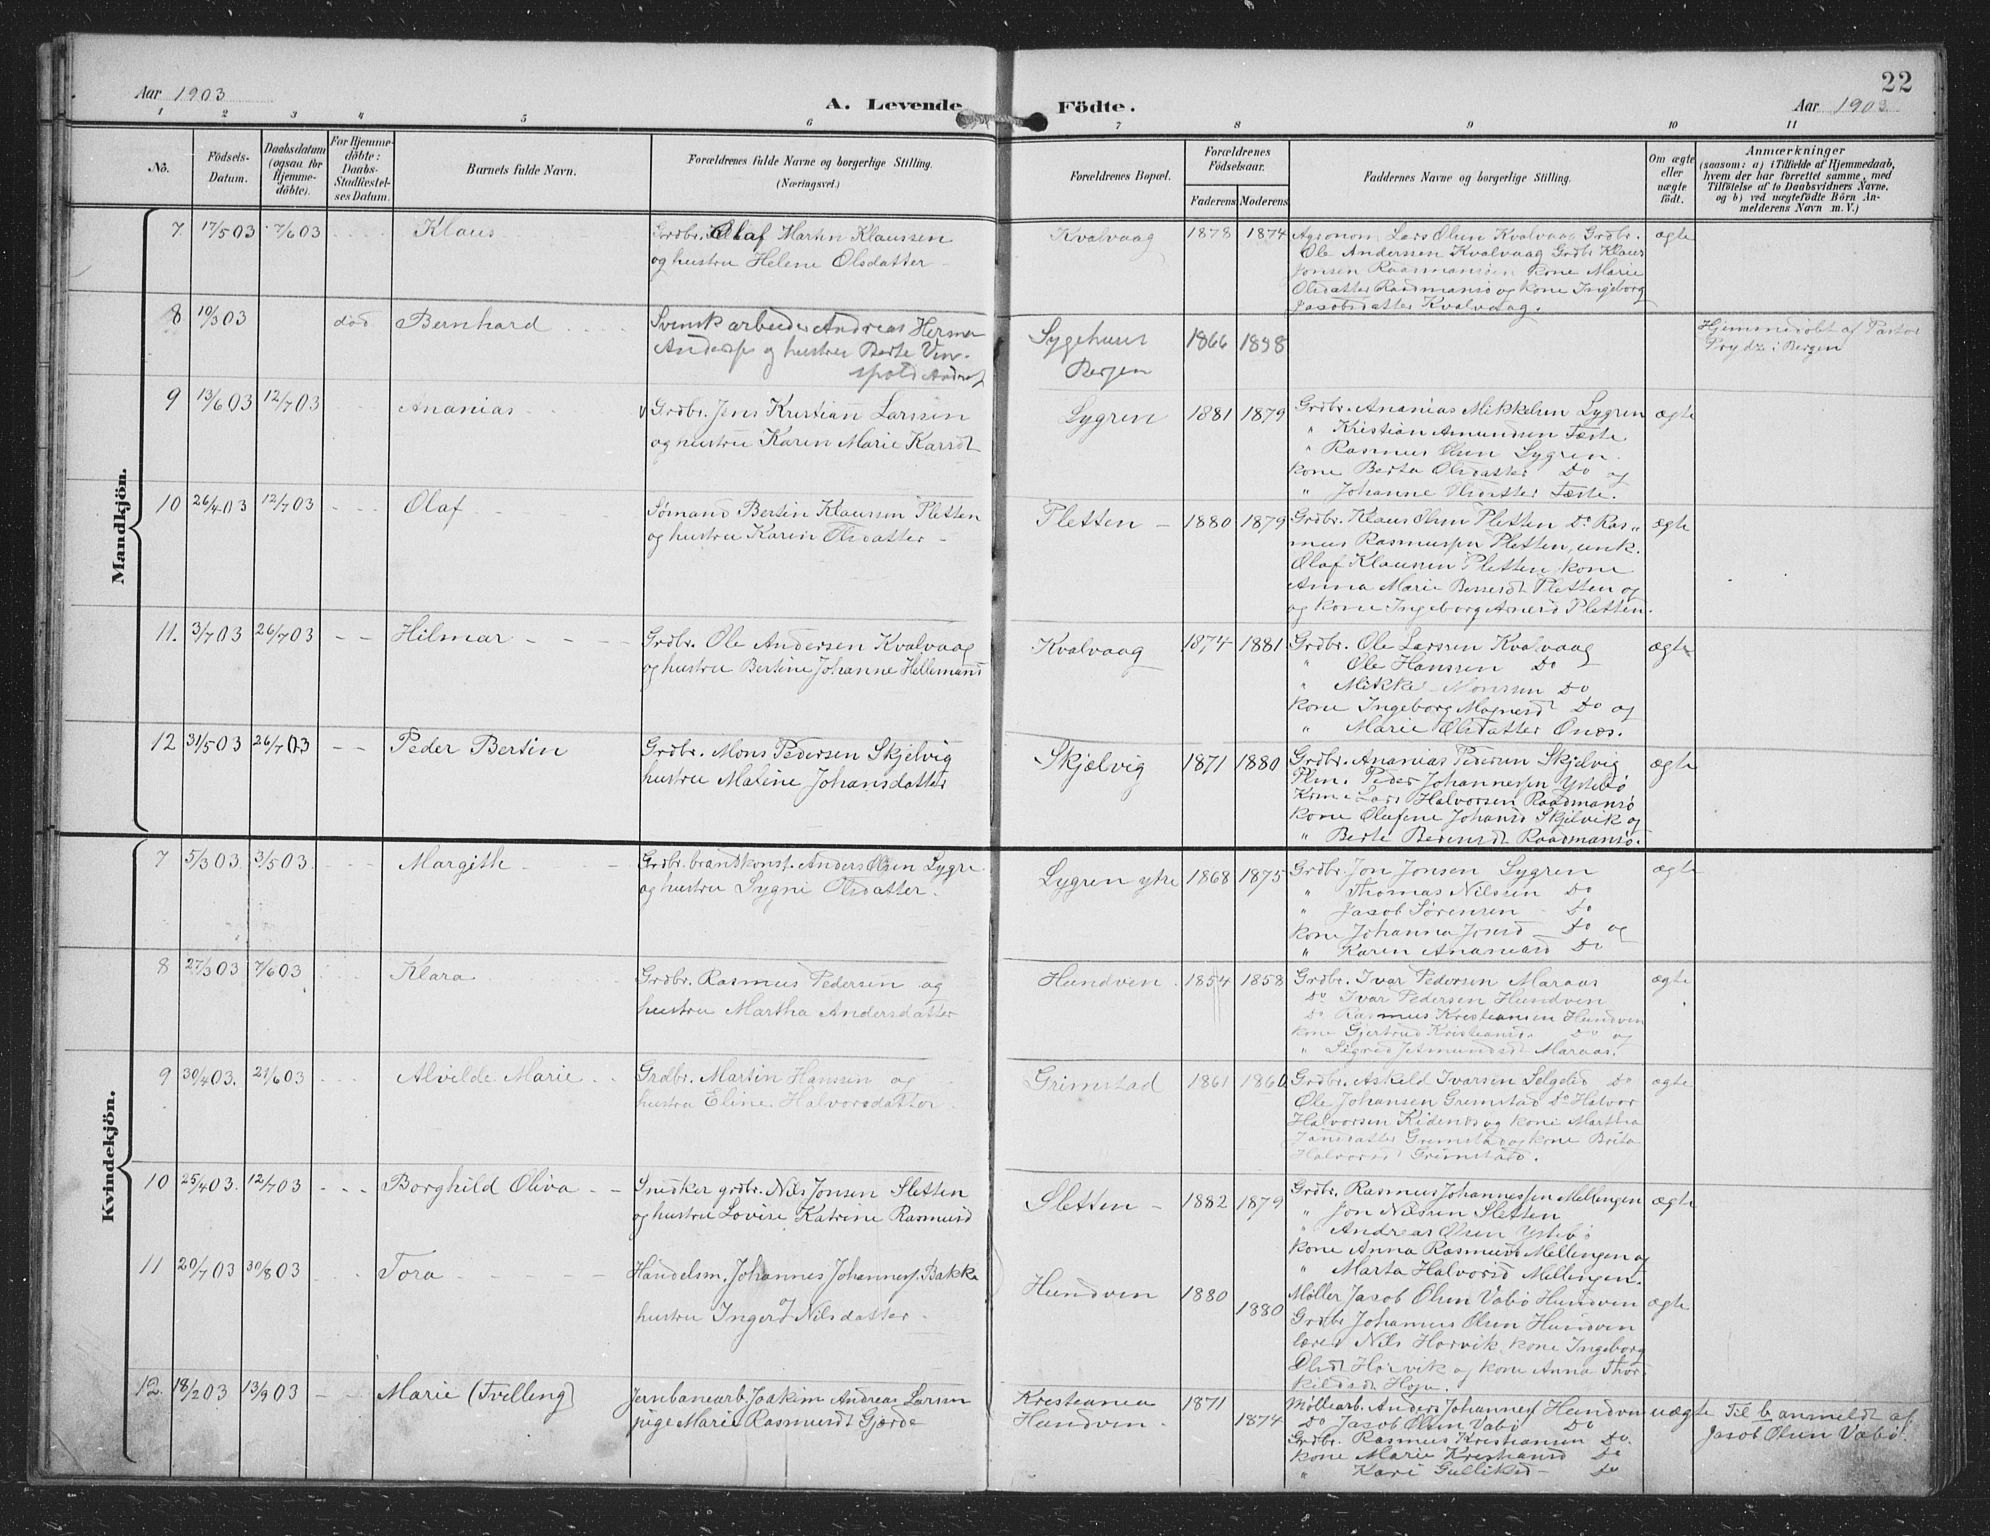 Aar 1903
A. Levende
Födte.
Aar 1903
22
1 2 3 4 5 6 7 8 9 10 11
No.
Födsels-
Datum.
Daabsdatum
(ogsaa for
Hjemme-
döbte).
For Hjemme-
döbte:
Daabs-
Stadfæstel-
ses Datum.
Barnets fulde Navn.
Forældrenes fulde Navne og borgerlige Stilling.
(Næringsvei.)
Forældrenes Bopæl.
Forældrenes
Födselsaar.
Faderens Moderens
Faddernes Navne og borgerlige Stilling.
Om ægte
eller
uægte
födt.
Anmærkninger
(saasom: a) i Tilfælde af Hjemmedaab,
hvem der har forrettet samme, med
Tilföielse af to Daabsvidners Navne.
og b) ved uægtefödte Börn An-
melderens Navn m. V.)
Mandkjön.
7. 17/5 03 7/6 03 Klaus
Grdbr. Olaf Martin Klaussen
og hustru Helene Olsdatter
Kvalvaag 1878 1874
Agronom Lars Olsen Kvalvaag Grdbr.
Ole Anderssen Kvalvaag Grdbr Klaus
Jonsen Raadmansøen kone Marie
Olsdatter Raadmansø og kone Ingeborg
Jacobsdatter Kvalvaag.
ægte
8 10/3 03 død Bernhard
Svensk arbeider Andreas
og hustru Berte
Sygehuset
Bergen
1866 1898
Hjemmedøbt af Pastor
Prydz i Bergen
9 13/6 03 12/7 03 Ananias
Grdbr. Jens Kristian Larssen
og hustru Karen Marie Karsdt
Lygren 1881 1879
Grdbr. Ananias Mikkelsen Lygren
" Kristian Amundsen Tæste
" Rasmus Olsen Lygren.
kone Berta Olsdatter Do og
" Johanne Olsdatter Tæste.
ægte
10 26/4 03 12/7 03 Olaf
Sømand Bertin Klaussen Pletten
og hustru Karen Olsdatter
Pletten 1880 1879
Grdbr. Klaus Olsen Pletten Do Ras-
mus Rasmussen Pletten, unk.
Olaf Klaussen Pletten, kone
Anna Marie Pletten og
og kone Ingeborg Pletten.
ægte
11. 3/7 03 26/7 03 Hilmar
Grdbr. Ole Andersen Kvalvaag
og hustru Bertine Johanne Hellemansd
Kvalvaag 1874 1881
Grdbr. Ole Larssen Kvalvaag
" Ole Hanssen Do
" Mikkel Monssen Do
kone Ingeborg Magnesd Do og
" Marie Olsdatter Onæs.
ægte
12 31/5 03 26/7 03 Peder Bertin
Grdbr. Mons Pedersen Skjelvig
hustru Maline Johansdatter
Skjælvig 1871 1880
Grdbr. Ananias Pedersen Skjelvig
Plm. Peder Johannessen Ystebø
Lars Halvorsen Raadmansø
kone Olufine Johansd Skjelvik og
" Berte Berentsdt Raadmansø.
ægte
Kvindekjön.
7 5/3 03 3/5 03. Margith
Grdbr. brandkonst. Anders Olsen Lygre
og hustru Lygni Olsdatter.
Lygren ytre 1868 1875
Grdbr. Jon Jonsen Lygren
" Thomas Nilssen Do
" Jacob Sørensen Do
kone Johanna Jonsd Do og
" Karen Ananiasd Do
ægte
8 27/3 03 7/6 03 Klara
Grdbr. Rasmus Pedersen og
hustru Martha Andersdatter
Hundven. 1854 1858
Grdbr. Ivar Pedersen Maraas
Do Ivar Pedersen Hundven
Do Rasmus Kristiansen Hundven
kone Gjertrud Kristiansd. Do og
" Sigrid Maraas.
ægte
9 30/4 03. 21/6 03 Alvilde Marie
Grdbr. Martin Hanssen og
hustru Eline Halvorsdatter
Grimstad 1861 1860
Grdbr. Askild Ivarsen Do
Ole Johansen Grimstad Do Halvor
Halvorsen og kone Martha
Jansdatter Grimstad og kone Brita
Halvorsd Grimstad.
ægte
10 25/4 03. 12/7 03 Borghild Oliva
Snedker grdbr. Nils Jonsen Sletten
og hustru Lovise Katrine Rasmusd
Sletten 1882 1879
Grdbr. Rasmus Johannessen Mellingen
" Jon Nilssen Sletten
" Andreas Olsen Ystebø
kone Anna Rasmusdt Mellingen og
" Marta Halvorsd Mellingen.
ægte
11 20/7 03 30/8 03 Tora
Handelsm. Johannes Johanness. Bakke
hustru Ingerd Nilsdatter
Hundven 1880 1880
Møller Jacob Olsen Vabø Hundven
Grdbr Johannes Olsen Hundven
lærer Nils Horvik, kone Ingeborg
Olsdt Horvik og kone Anna Thor-
kildsdt Hope.
ægte
12. 18/2 03 13/9 03 Marie (Tvilling)
Jernbanearb. Joakim Andreas Larsen
pige Marie Rasmusdt Gjerde
Kristiania
Hundven.
1871 1874
Møllearb. Anders Johanness Hundven
Do Jacob Olsen Vabø Do
Grdbr. Rasmus Kristiansen Do.
kone Marie Kristiansd Do
" Kari Gulliksd Do
uægte
Til b anmeldt af
Jacob Olsen Vabø.